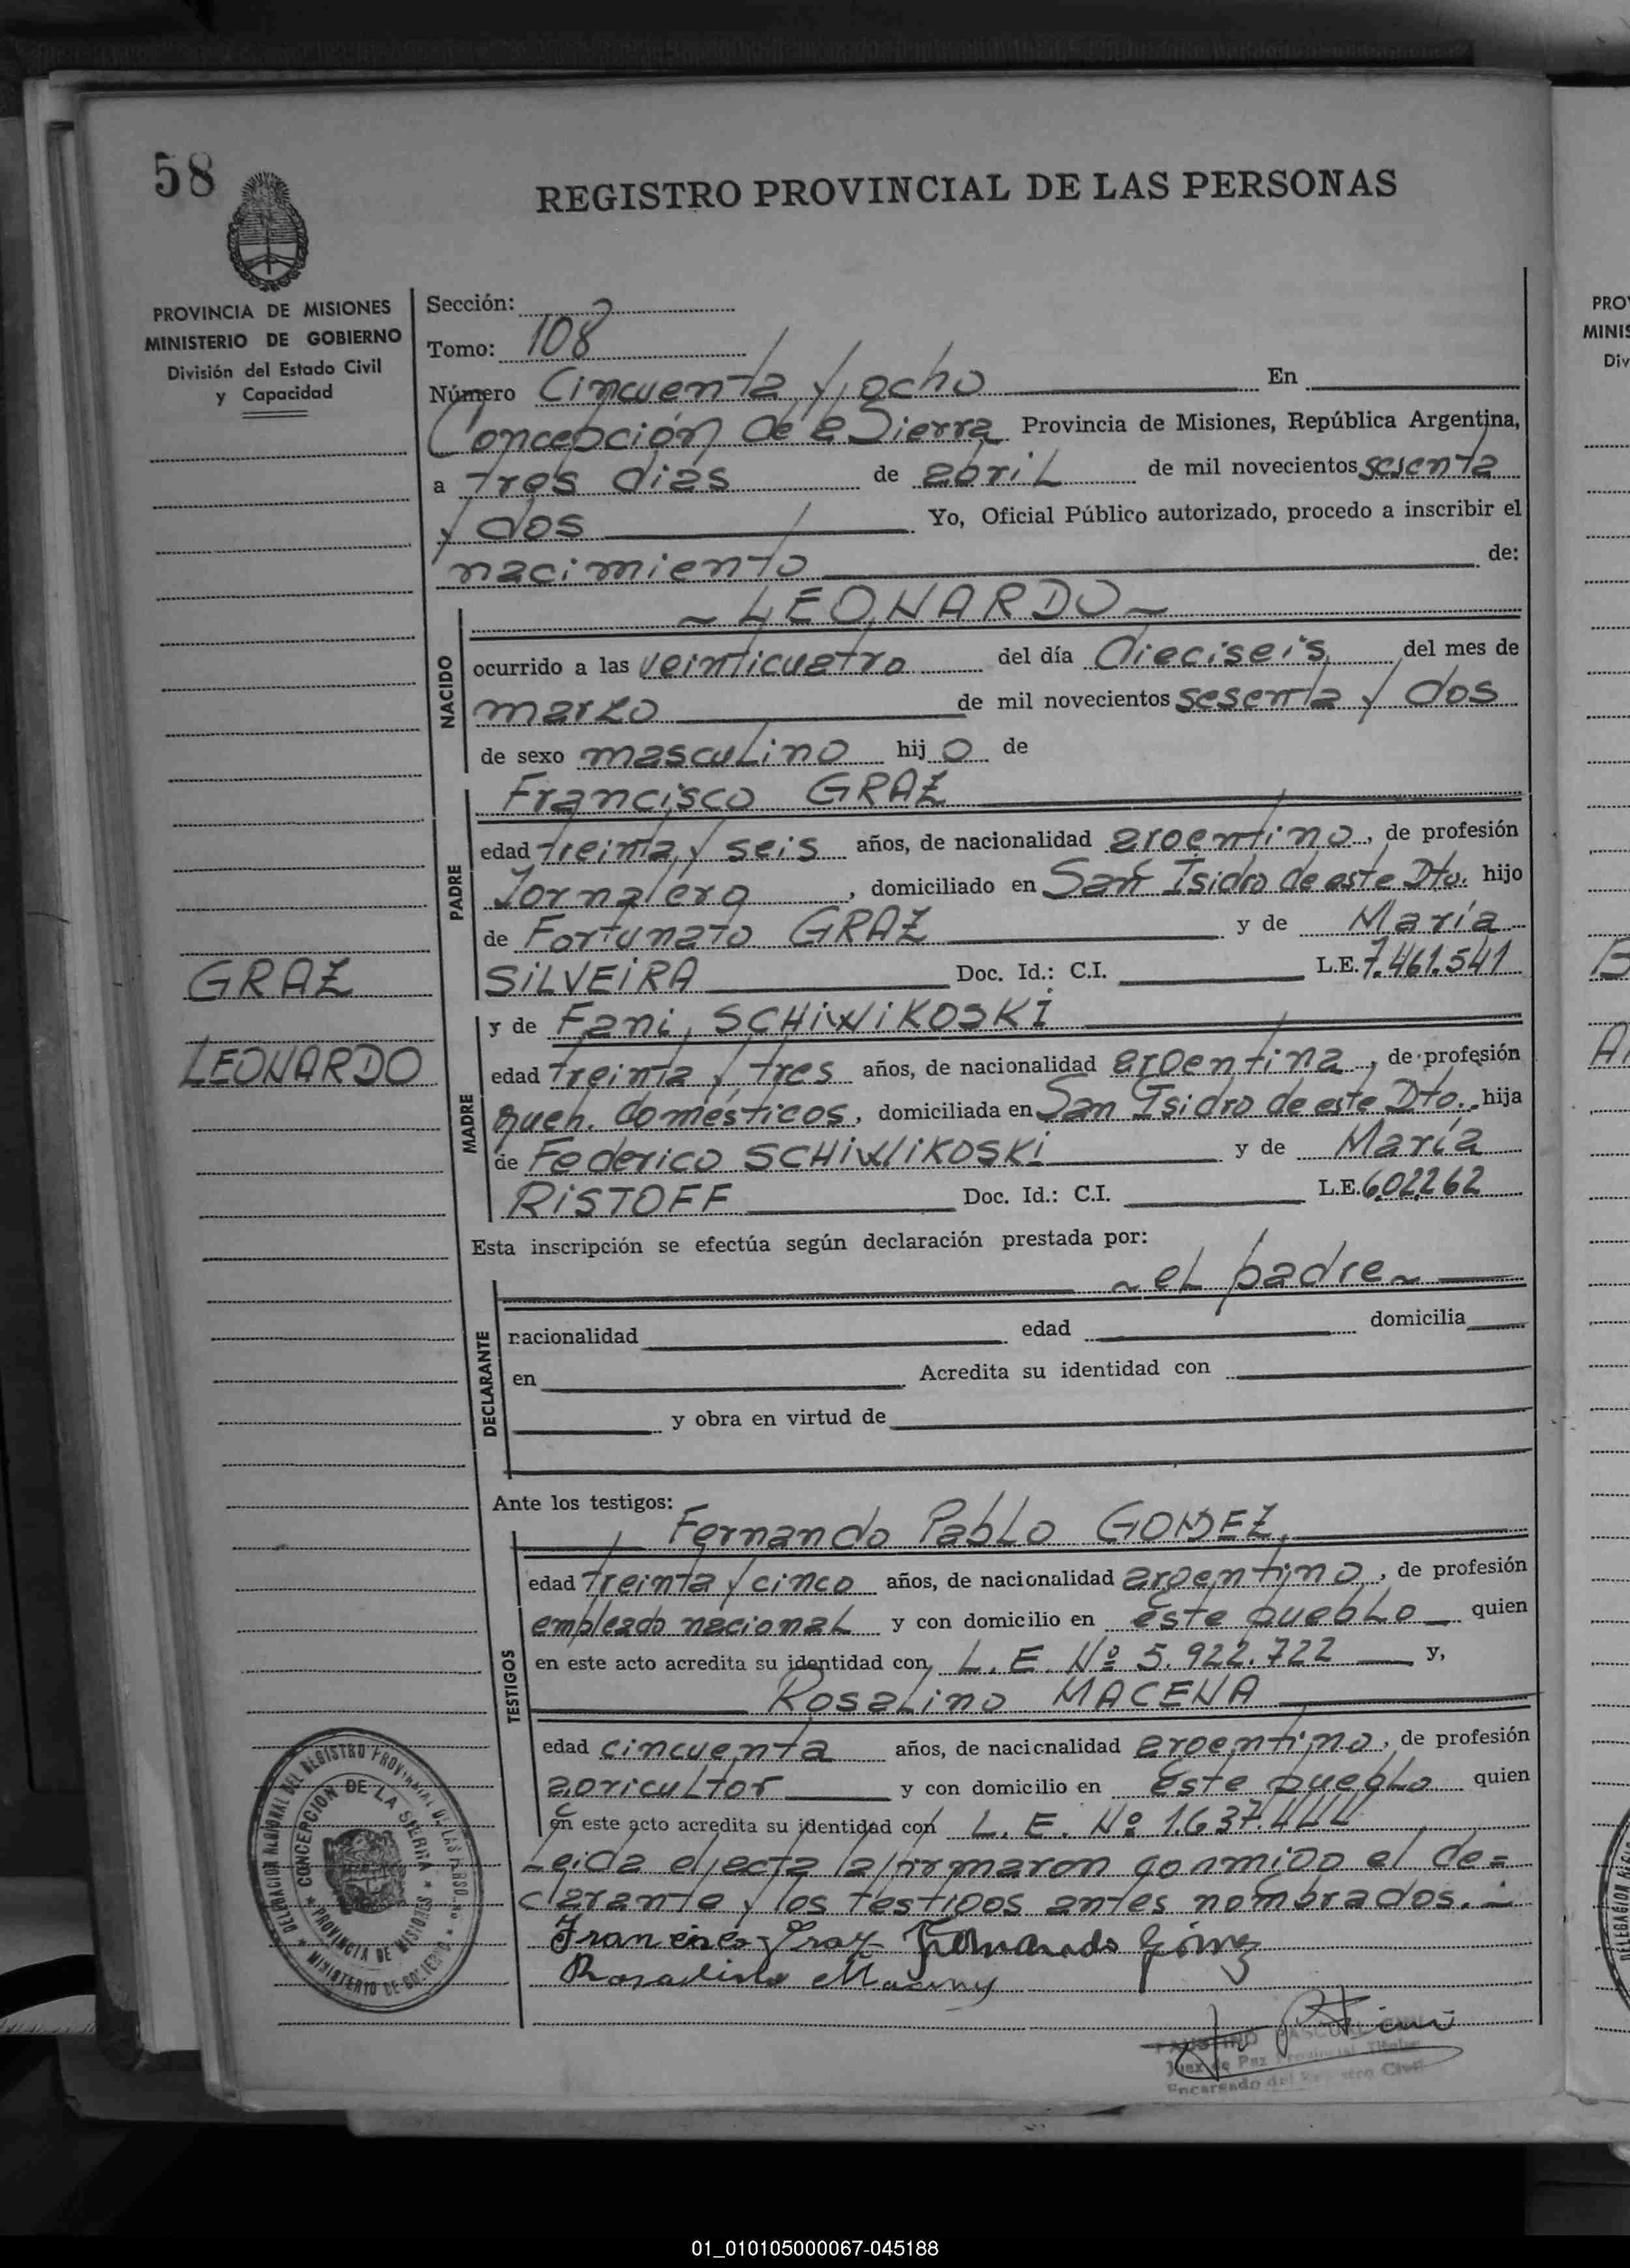 58
REGISTRO PROVINCIAL DE LAS PERSONAS
PROVINCIA DE MISIONES
MINISTERIO DE GOBIERNO
División del Estado Civil
y Capacidad
GRAZ
LEONARDO
Sección:
Tomo: 108
Número Cincuenta y ocho En
Concepción de la Sierra Provincia de Misiones, República Argentina,
a tres días de abril de mil novecientos sesenta
y dos Yo, Oficial Público autorizado, procedo a inscribir el
nacimiento de:
~ LEONARDO ~
NACIDO
ocurrido a las veinticuatro del día Dieciseis del mes de
marzo de mil novecientos sesenta y dos
de sexo masculino hij o de
Francisco GRAZ
PADRE
edad treinta y seis años, de nacionalidad argentino, de profesión
Jornalero, domiciliado en San Isidro de este Dto. hijo
de Fortunato GRAZ y de María
SILVEIRA Doc. Id.: C.I. L.E. 7.461.541
MADRE
y de Fani SCHIWIKOSKI
edad treinta y tres años, de nacionalidad argentina, de profesión
queh. domésticos, domiciliada en San Isidro de este Dto. hija
de Federico SCHIWIKOSKI y de María
RISTOFF Doc. Id.: C.I. L.E. 6.022.62
Esta inscripción se efectúa según declaración prestada por:
~ el padre ~
DECLARANTE
nacionalidad edad domicilia
en Acredita su identidad con
y obra en virtud de
Ante los testigos:
Fernando Pablo GOMEZ
TESTIGOS
edad treinta y cinco años, de nacionalidad argentino, de profesión
empleado nacional y con domicilio en este pueblo quien
en este acto acredita su identidad con L. E. Nº 5.922.722 y,
Rosalino MACENA
edad cincuenta años, de nacionalidad argentino, de profesión
agricultor y con domicilio en este pueblo quien
en este acto acredita su identidad con L. E. Nº 1.637.444
Leida el acta la firmaron conmigo el de=
clarante y los testigos antes nombrados.=
Francisco Graz Fernando Gómez
Rosalino
DELEGACION REGIONAL DEL REGISTRO PROVINCIAL DE LAS PERSONAS
MINISTERIO DE GOBIERNO
CONCEPCION DE LA SIERRA
PROVINCIA DE MISIONES
FAUSTINO PASCUAL
Juez de Paz Provincial Titular
Encargado del Registro Civil
PRO
MINIS
Div
01_010105000067-045188